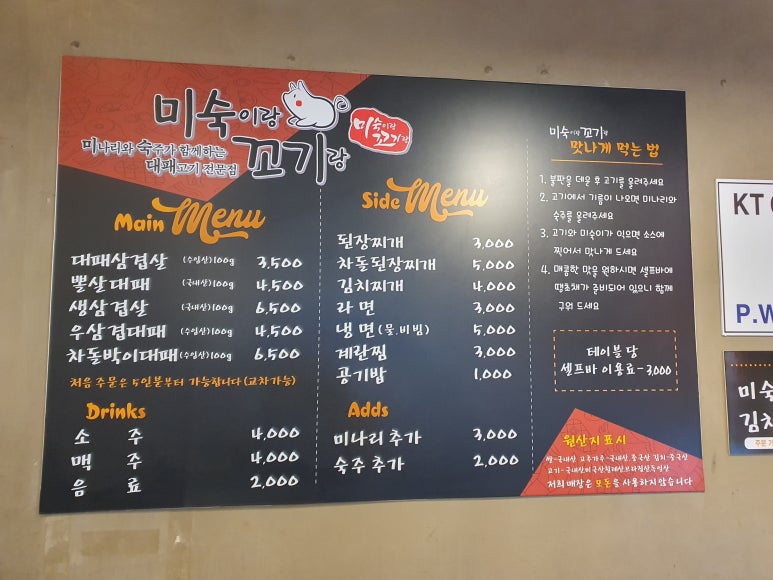 미숙이랑 꼬기랑
미나리와 숙주가 함께하는
대패고기 전문점
미숙이랑
꼬기랑
Main Menu
대패삼겹살 (수입산)100g 3,500
뽈살대패 (국내산)100g 4,500
생삼겹살 (국내산)100g 6,500
우삼겹대패 (수입산)100g 4,500
차돌박이대패 (수입산)100g 6,500
처음 주문은 5인분부터 가능합니다 (교차가능)
Drinks
소 주 4,000
맥 주 4,000
음 료 2,000
Side Menu
된장찌개 3,000
차돌된장찌개 5,000
김치찌개 4,000
라 면 3,000
냉 면 (물.비빔) 5,000
계란찜 3,000
공기밥 1,000
Adds
미나리 추가 3,000
숙주 추가 2,000
미숙이랑 꼬기랑
맛나게 먹는 법
1. 불판을 데운 후 고기를 올려주세요
2. 고기에서 기름이 나오면 미나리와
숙주를 올려주세요
3. 고기와 미숙이가 익으면 소스에
찍어서 맛나게 드세요
4. 매콤한 맛을 원하시면 셀프바에
땡초채가 준비되어 있으니 함께
구워 드세요
테이블 당
셀프바 이용료 - 3,000
원산지 표시
쌀-국내산 고추가루-국내산,중국산 김치-중국산
저희 매장은 모돈을 사용하지 않습니다
KT
P.W
미숙
김치